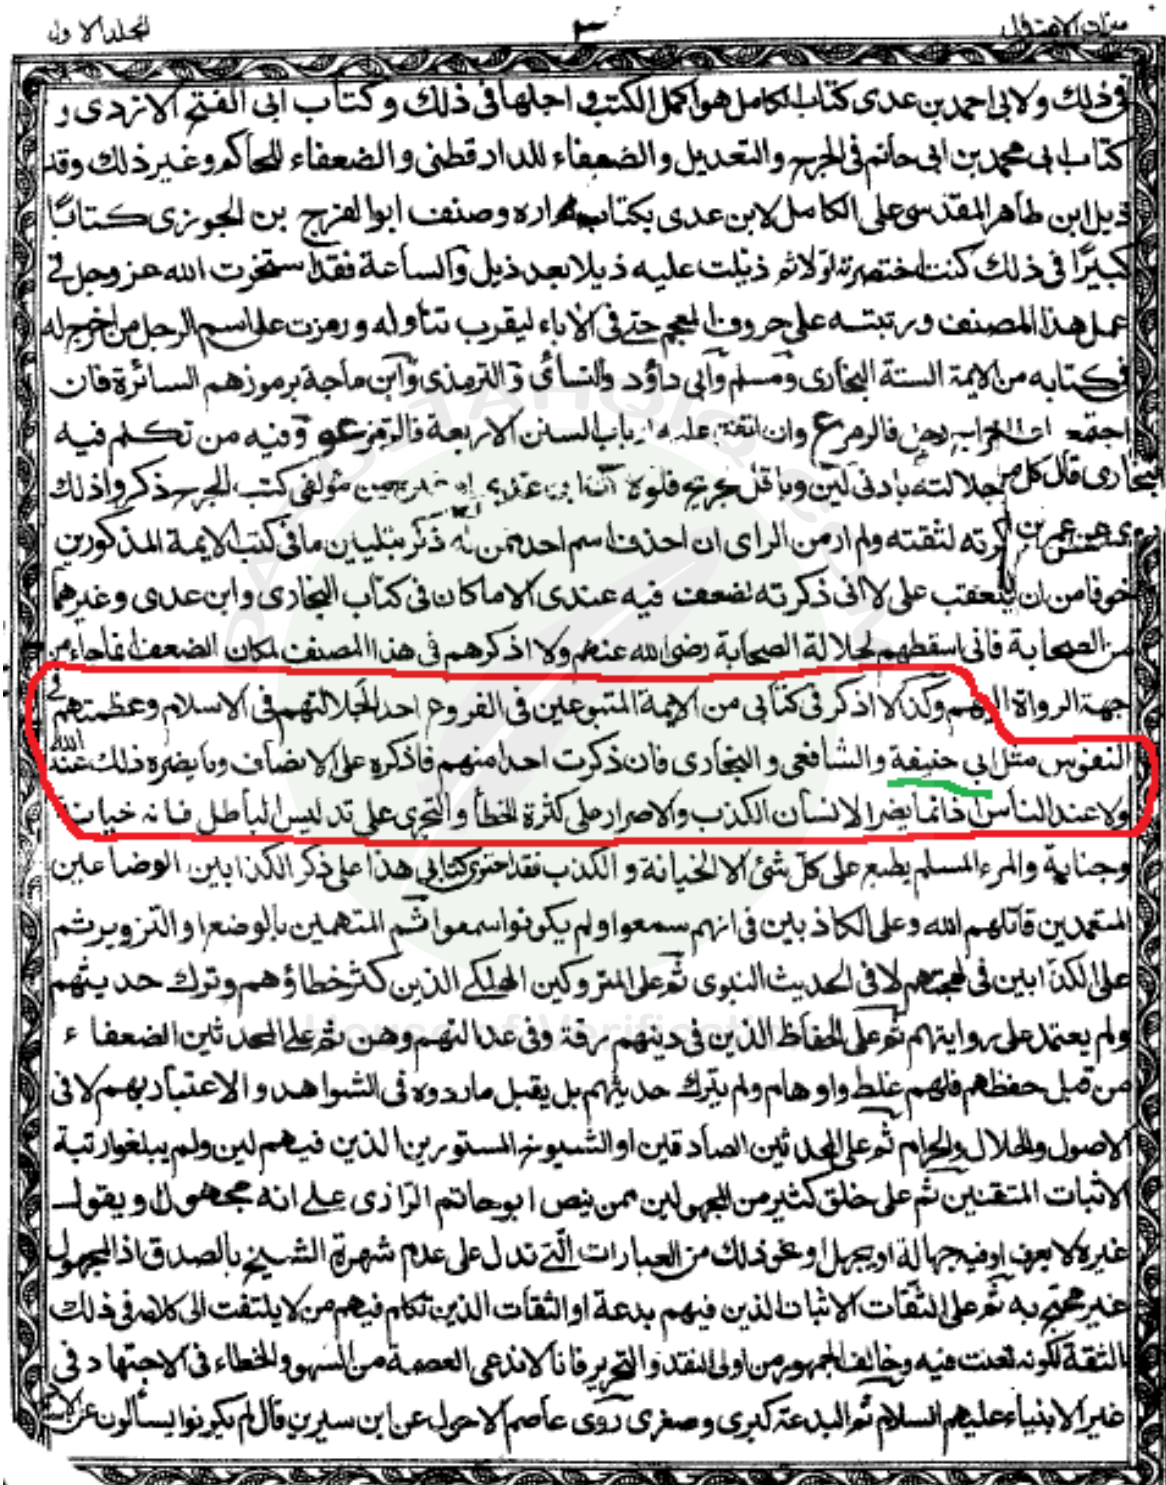 ميزان الاعتدال
٣
المجلد الاول
فى ذلك ولابى احمد بن عدى كتاب الكامل هو اكمل الكتب واجلها فى ذلك وكتاب ابى الفتح الازدى و
كتاب ابى محمد بن ابى حاتم فى الجرح والتعديل والضعفاء للدارقطنى والضعفاء للحاكم وغير ذلك وقد
ذيل ابن طاهر المقدسى على الكامل لابن عدى بكتاب لم اره وصنف ابو الفرج بن الجوزى كتابًا
كبيرًا فى ذلك كنت اختصرته اولا ثم ذيلت عليه ذيلا بعد ذيل والساعة فقد استخرت الله عز وجل فى
عمل هذا المصنف ورتبته على حروف المعجم حتى فى الاباء ليقرب تناوله ورمزت على اسم الرجل من اخرج له
فى كتابه من الايمة الستة البخارى ومسلم وابى داؤد والنسائى والترمذى وابن ماجة برموزهم السائرة فان
اجتمعوا على اخراج رجل فالرمز ع وان اتفق عليه ارباب السنن الاربعة فالرمز عو وفيه من تكلم فيه
مع جلالته بادنى لين وباقل تجريح فلولا ان ابن عدى او غيره من مؤلفى كتب الجرح ذكروا ذلك
البخارى قال كل من
لما ذكرته لثقته ولم ار من الراى ان احذف اسم احد ممن له ذكر بتليين ما فى كتب الايمة المذكورين
روى عن عمر بن
خوفا من ان يتعقب على لا انى ذكرته لضعف فيه عندى الا ما كان فى كتاب البخارى وابن عدى وغيرهما
من الصحابة فانى اسقطهم لجلالة الصحابة رضى الله عنهم ولا اذكرهم فى هذا المصنف لمكان الضعف انما جاء من
جهة الرواة اليهم وكذا لا اذكر فى كتابى من الايمة المتبوعين فى الفروع احدا لجلالتهم فى الاسلام وعظمتهم فى
النفوس مثل ابى حنيفة والشافعى والبخارى فان ذكرت احدا منهم فاذكره على الانصاف وما يضره ذلك عند الله
ولا عند الناس فانما يضر الانسان الكذب والاصرار على كثرة الخطأ والتجرى على تدليس الباطل فانه خيانة
وجناية والمرء المسلم يطبع على كل شئ الا الخيانة والكذب فقد احتوى كتابى هذا على ذكر الكذابين الوضاعين
المتعمدين قاتلهم الله وعلى الكاذبين فى انهم سمعوا ولم يكونوا سمعوا ثم المتهمين بالوضع او التزوير ثم
على الكذابين فى لهجتهم لا فى الحديث النبوى ثم على المتروكين الهلكى الذين كثر خطاؤهم وترك حديثهم
ولم يعتمد على روايتهم ثم على الحفاظ الذين فى دينهم رقة وفى عدالتهم وهن ثم على المحدثين الضعفاء
من قبل حفظهم فلهم غلط واوهام ولم يترك حديثهم بل يقبل ما رووه فى الشواهد والاعتبار بهم لا فى
الاصول والحلال والحرام ثم على المحدثين الصادقين او الشيوخ المستورين الذين فيهم لين ولم يبلغوا رتبة
الاثبات المتقنين ثم على خلق كثير من المجهولين ممن ينص ابو حاتم الرازى على انه مجهول ويقول
غيره لا يعرف او فيه جهالة او يجهل او نحو ذلك من العبارات التى تدل على عدم شهرة الشيخ بالصدق اذ المجهول
غير محتج به ثم على الثقات الاثبات الذين فيهم بدعة او الثقات الذين تكلم فيهم من لا يلتفت الى كلامه فى ذلك
الثقة لكونه تعنت فيه وخالف الجمهور من اولى النقد والتحرير فانا لا ندعى العصمة من السهو والخطاء فى الاجتهاد فى
غير الانبياء عليهم السلام ثم البدعة كبرى وصغرى روى عاصم الاحول عن ابن سيرين قال لم يكونوا يسألون عن الاسناد